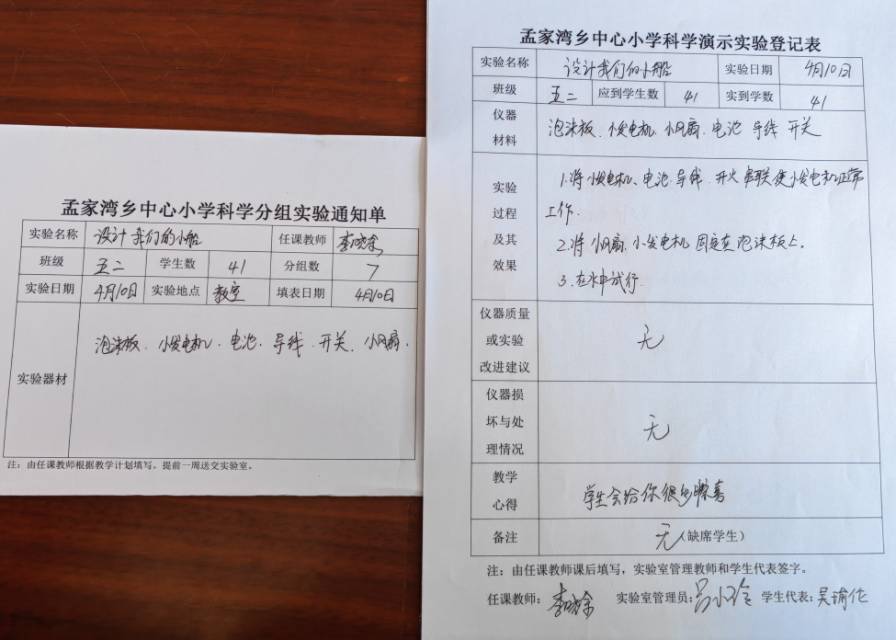 孟家湾乡中心小学科学分组实验通知单
实验名称 设计我们的小船 任课教师
班级 五二 学生数 41 分组数 7
实验日期 4月10日 实验地点 教室 填表日期 4月10日
实验器材 泡沫板、小发电机、电池、导线、开关、小风扇.
注：由任课教师根据教学计划填写，提前一周送交实验室。
孟家湾乡中心小学科学演示实验登记表
实验名称 设计我们的小船 实验日期 4月10日
班级 五二 应到学生数 41 实到学数 41
仪器
材料
泡沫板、小发电机、小风扇、电池 导线 开关
实验
过程
及其
效果
1.将小发电机、电池、导线、开火串联使小发电机正常
工作.
2.将小风扇、小发电机固定在泡沫板上.
3.在水中试行.
仪器质量
或实验
改进建议
无
仪器损
坏与处
理情况
无
教学
心得
学生会给你很多惊喜
备注 无（缺席学生）
注：由任课教师课后填写，实验室管理教师和学生代表签字。
任课教师： 实验室管理员：吕小玲 学生代表：